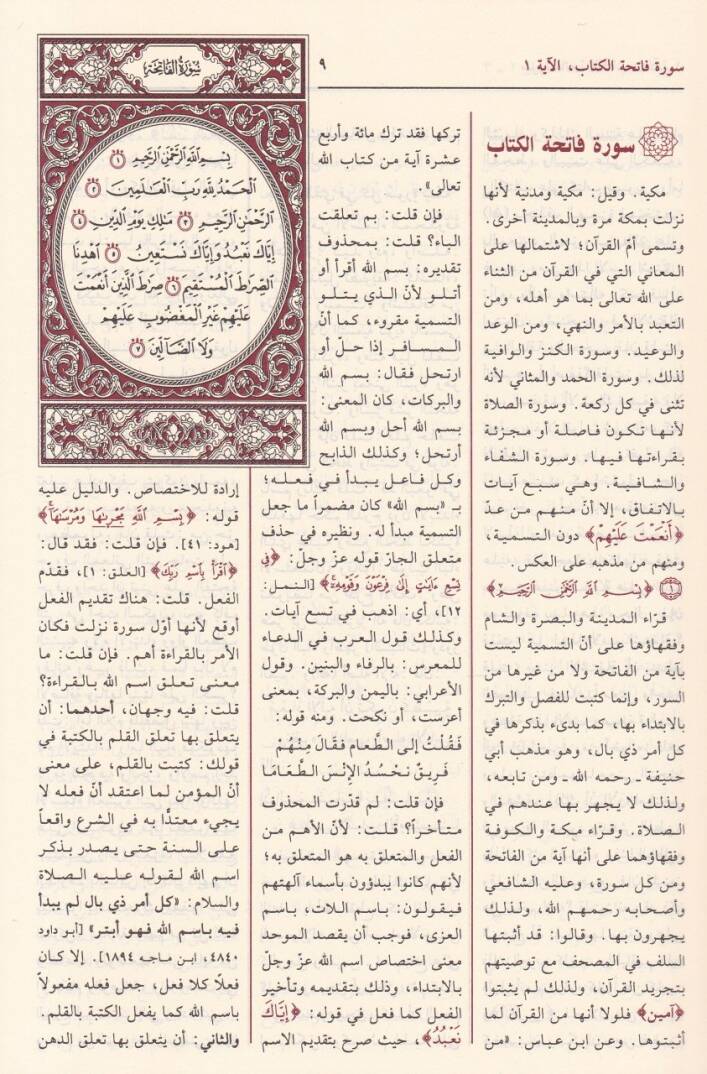 سورة فاتحة الكتاب، الآية ١
٩
سُورَةُ الفَاتِحَة
بِسْمِ ٱللَّهِ ٱلرَّحْمَٰنِ ٱلرَّحِيمِ ١
ٱلْحَمْدُ لِلَّهِ رَبِّ ٱلْعَٰلَمِينَ ٢
ٱلرَّحْمَٰنِ ٱلرَّحِيمِ ٣ مَٰلِكِ يَوْمِ ٱلدِّينِ ٤
إِيَّاكَ نَعْبُدُ وَإِيَّاكَ نَسْتَعِينُ ٥ ٱهْدِنَا
ٱلصِّرَٰطَ ٱلْمُسْتَقِيمَ ٦ صِرَٰطَ ٱلَّذِينَ أَنْعَمْتَ
عَلَيْهِمْ غَيْرِ ٱلْمَغْضُوبِ عَلَيْهِمْ
وَلَا ٱلضَّآلِّينَ ٧
سورة فاتحة الكتاب
مكية. وقيل: مكية ومدنية لأنها
نزلت بمكة مرة وبالمدينة أخرى.
وتسمى أمّ القرآن؛ لاشتمالها على
المعاني التي في القرآن من الثناء
على الله تعالى بما هو أهله، ومن
التعبد بالأمر والنهي، ومن الوعد
والوعيد. وسورة الكنز والوافية
لذلك. وسورة الحمد والمثاني لأنه
تثنى في كل ركعة. وسورة الصلاة
لأنها تكون فاصلة أو مجزئة
بقراءتها فيها. وسورة الشفاء
والشافية. وهي سبع آيات
بالاتفاق، إلا أنّ منهم من عدّ
﴿أَنْعَمْتَ عَلَيْهِمْ﴾ دون التسمية،
ومنهم من مذهبه على العكس.
١ ﴿بِسْمِ ٱللَّهِ ٱلرَّحْمَٰنِ ٱلرَّحِيمِ﴾
قرّاء المدينة والبصرة والشام
وفقهاؤها على أنّ التسمية ليست
بآية من الفاتحة ولا من غيرها من
السور، وإنما كتبت للفصل والتبرك
بالابتداء بها، كما بدىء بذكرها في
كل أمر ذي بال، وهو مذهب أبي
حنيفة ـ رحمه الله ـ ومن تابعه،
ولذلك لا يجهر بها عندهم في
الصلاة. وقرّاء مكة والكوفة
وفقهاؤهما على أنها آية من الفاتحة
ومن كل سورة، وعليه الشافعي
وأصحابه رحمهم الله، ولذلك
يجهرون بها. وقالوا: قد أثبتها
السلف في المصحف مع توصيتهم
بتجريد القرآن، ولذلك لم يثبتوا
﴿آمين﴾ فلولا أنها من القرآن لما
أثبتوها. وعن ابن عباس: «من
تركها فقد ترك مائة وأربع
عشرة آية من كتاب الله
تعالى».
فإن قلت: بم تعلقت
الباء؟ قلت: بمحذوف
تقديره: بسم الله أقرأ أو
أتلو لأنّ الذي يتلو
التسمية مقروء، كما أنّ
المسافر إذا حلّ أو
ارتحل فقال: بسم الله
والبركات، كان المعنى:
بسم الله أحل وبسم الله
أرتحل؛ وكذلك الذابح
وكل فاعل يبدأ في فعله؛
بـ «بسم الله» كان مضمراً ما جعل
التسمية مبدأ له. ونظيره في حذف
متعلق الجارّ قوله عزّ وجلّ: ﴿فِي
تِسْعِ ءَايَٰتٍ إِلَىٰ فِرْعَوْنَ وَقَوْمِهِ﴾ [النمل:
١٢]، أي: اذهب في تسع آيات.
وكذلك قول العرب في الدعاء
للمعرس: بالرفاء والبنين. وقول
الأعرابي: باليمن والبركة، بمعنى
أعرست، أو نكحت. ومنه قوله:
فَقُلْتُ إلى الطَّعام فَقالَ مِنْهُمْ
فَرِيقٌ نَحْسُدُ الإنْسَ الطَّعَامَا
فإن قلت: لم قدّرت المحذوف
متأخراً؟ قلت: لأنّ الأهم من
الفعل والمتعلق به هو المتعلق به؛
لأنهم كانوا يبدؤون بأسماء آلهتهم
فيقولون: باسم اللات، باسم
العزى، فوجب أن يقصد الموحد
معنى اختصاص اسم الله عزّ وجلّ
بالابتداء، وذلك بتقديمه وتأخير
الفعل كما فعل في قوله: ﴿إِيَّاكَ
نَعْبُدُ﴾، حيث صرح بتقديم الاسم
إرادة للاختصاص. والدليل عليه
قوله: ﴿بِسْمِ ٱللَّهِ مَجْرٜىٰهَا وَمُرْسَىٰهَآ﴾
[هود: ٤١]. فإن قلت: فقد قال:
﴿ٱقْرَأْ بِٱسْمِ رَبِّكَ﴾ [العلق: ١]، فقدّم
الفعل. قلت: هناك تقديم الفعل
أوقع لأنها أوّل سورة نزلت فكان
الأمر بالقراءة أهم. فإن قلت: ما
معنى تعلق اسم الله بالقراءة؟
قلت: فيه وجهان، أحدهما: أن
يتعلق بها تعلق القلم بالكتبة في
قولك: كتبت بالقلم، على معنى
أنّ المؤمن لما اعتقد أنّ فعله لا
يجيء معتدًّا به في الشرع واقعاً
على السنة حتى يصدر بذكر
اسم الله لقوله عليه الصلاة
والسلام: «كل أمر ذي بال لم يبدأ
فيه باسم الله فهو أبتر» [أبو داود
٤٨٤٠، ابن ماجه ١٨٩٤]. إلا كان
فعلًا كلا فعل، جعل فعله مفعولاً
باسم الله كما يفعل الكتبة بالقلم.
والثاني: أن يتعلق بها تعلق الدهن